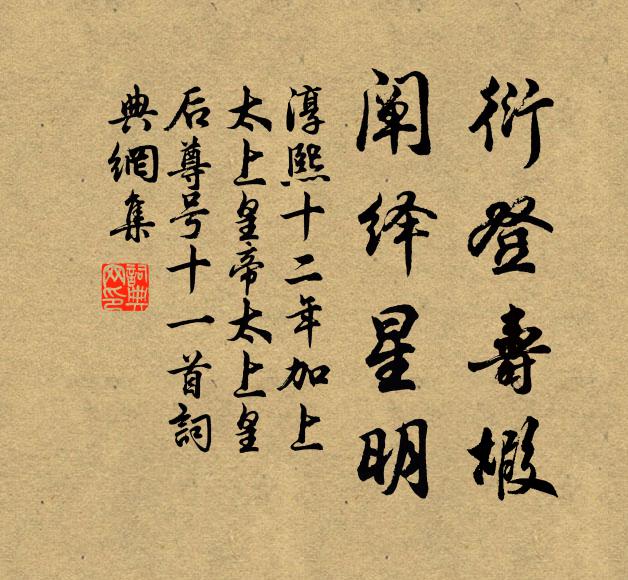 衍登壽椵
阐绎星明
淳熙十二年加上
太上皇帝太上皇
后尊号十一首詞
典網集
詞典網印